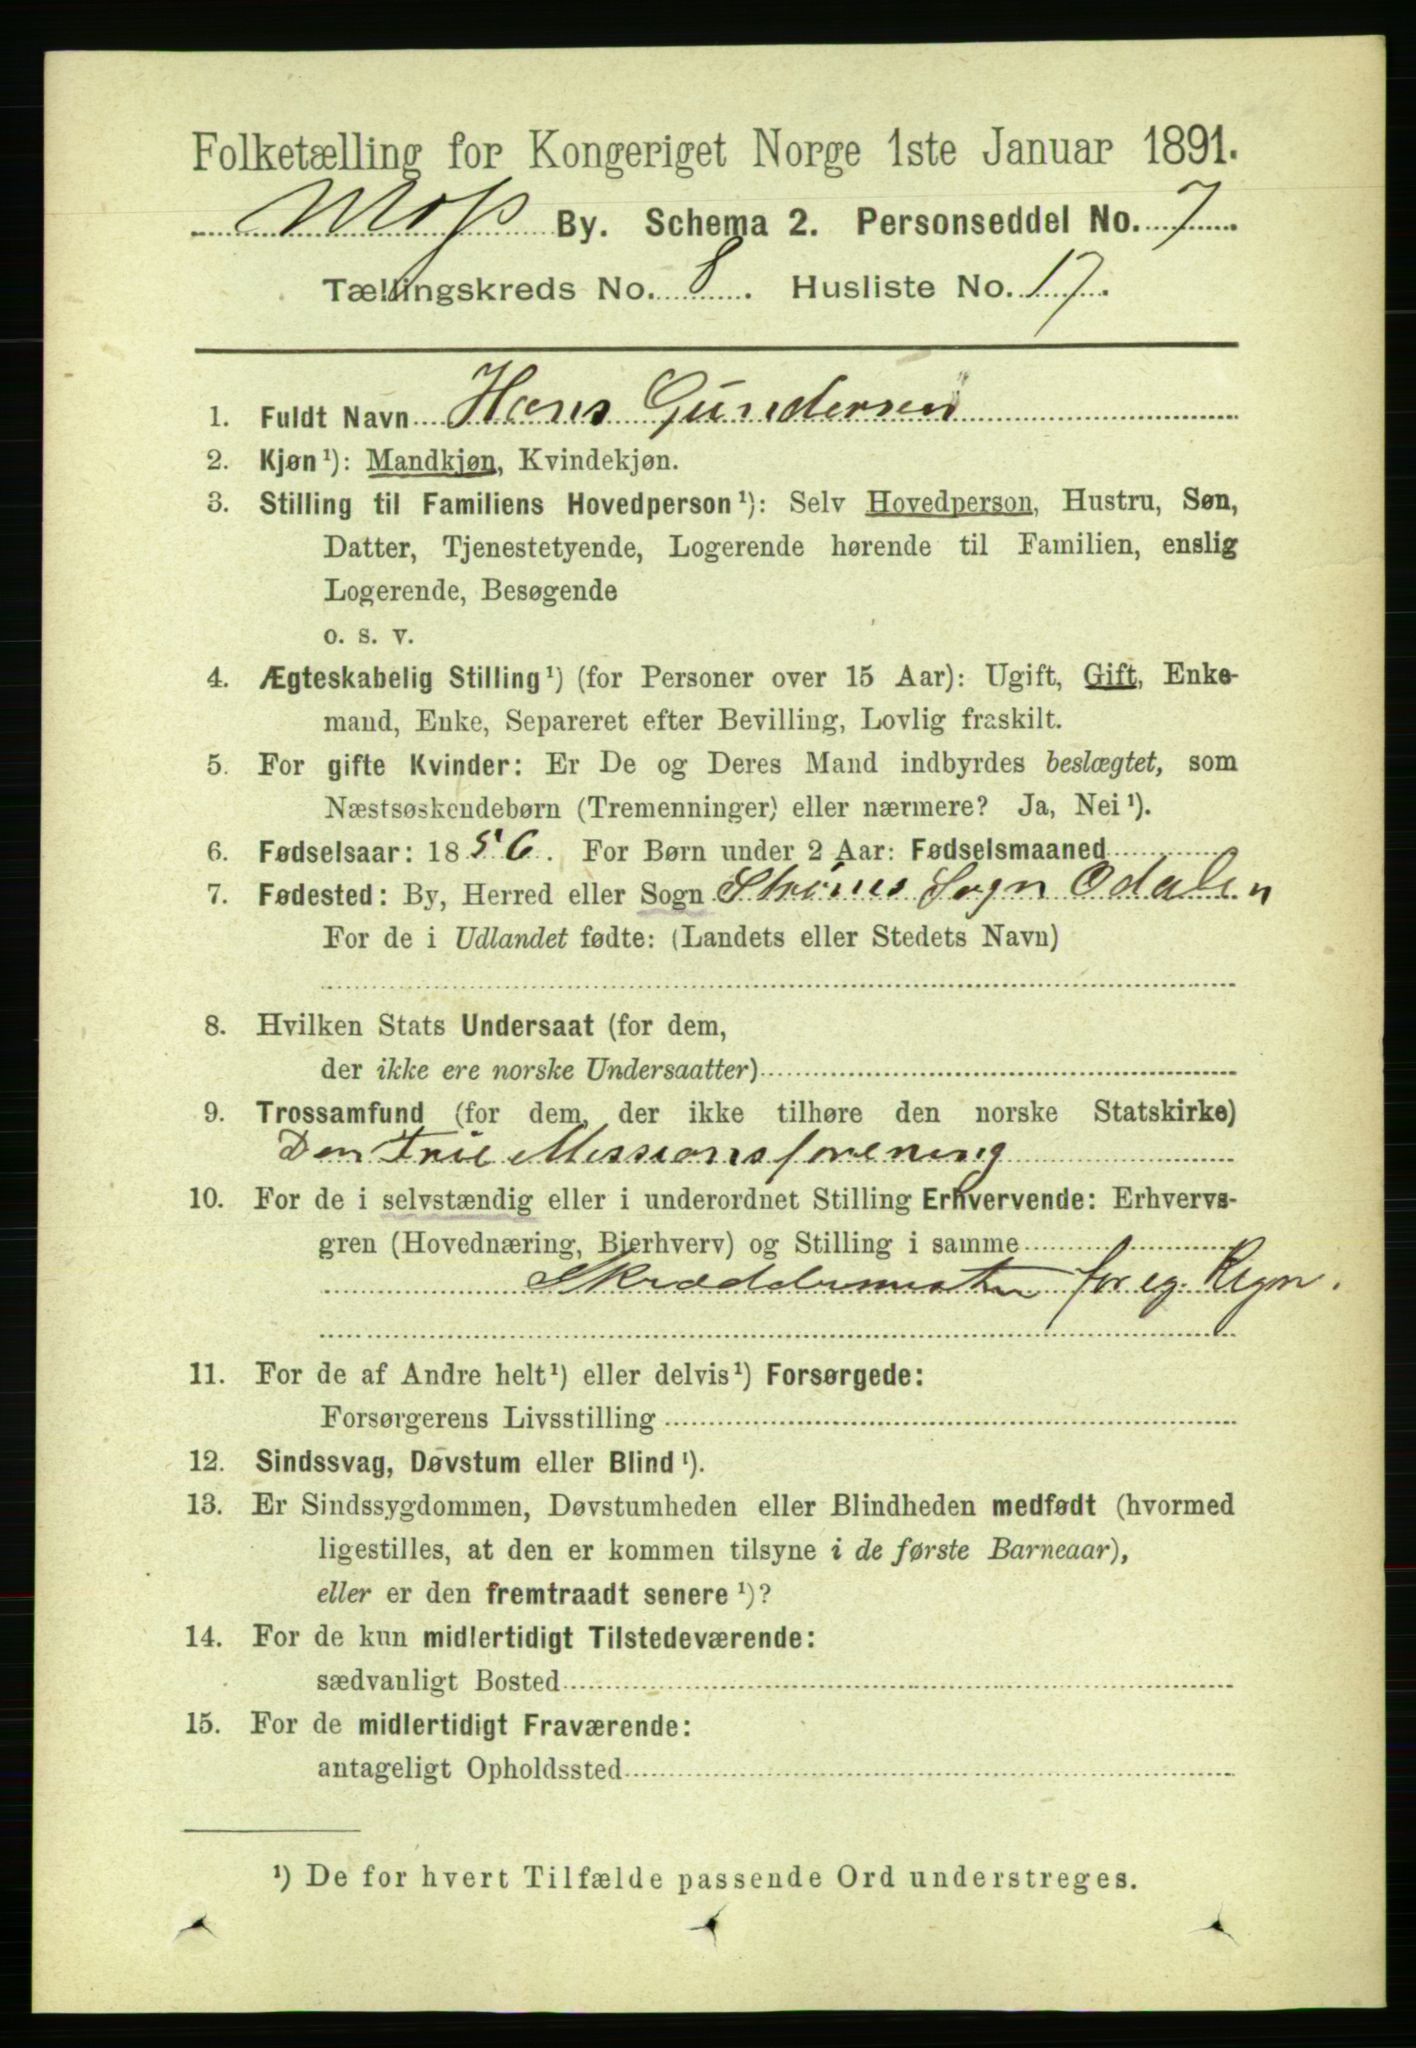 Folketælling for Kongeriget Norge 1ste Januar 1891.
Moss By. Schema 2. Personseddel No. 7
Tællingskreds No. 8. Husliste No. 17.
1. Fuldt Navn Hans Gundersen
2. Kjøn¹): Mandkjøn, Kvindekjøn.
3. Stilling til Familiens Hovedperson¹): Selv Hovedperson, Hustru, Søn,
Datter, Tjenestetyende, Logerende hørende til Familien, enslig
Logerende, Besøgende
o. s. v.
4. Ægteskabelig Stilling¹) (for Personer over 15 Aar): Ugift, Gift, Enke-
mand, Enke, Separeret efter Bevilling, Lovlig fraskilt.
5. For gifte Kvinder: Er De og Deres Mand indbyrdes beslægtet, som
Næstsøskendebørn (Tremenninger) eller nærmere? Ja, Nei¹).
6. Fødselsaar: 1856. For Børn under 2 Aar: Fødselsmaaned
7. Fødested: By, Herred eller Sogn Strøms Sogn Odalen
For de i Udlandet fødte: (Landets eller Stedets Navn)
8. Hvilken Stats Undersaat (for dem,
der ikke ere norske Undersaatter)
9. Trossamfund (for dem, der ikke tilhøre den norske Statskirke)
Den Frie Missionsforening
10. For de i selvstændig eller i underordnet Stilling Erhvervende: Erhvervs-
gren (Hovednæring, Bierhverv) og Stilling i samme
Skræddermester for eg. Regn.
11. For de af Andre helt¹) eller delvis¹) Forsørgede:
Forsørgerens Livsstilling
12. Sindssvag, Døvstum eller Blind¹).
13. Er Sindssygdommen, Døvstumheden eller Blindheden medfødt (hvormed
ligestilles, at den er kommen tilsyne i de første Barneaar),
eller er den fremtraadt senere¹)?
14. For de kun midlertidigt Tilstedeværende:
sædvanligt Bosted
15. For de midlertidigt Fraværende:
antageligt Opholdssted
¹) De for hvert Tilfælde passende Ord understreges.